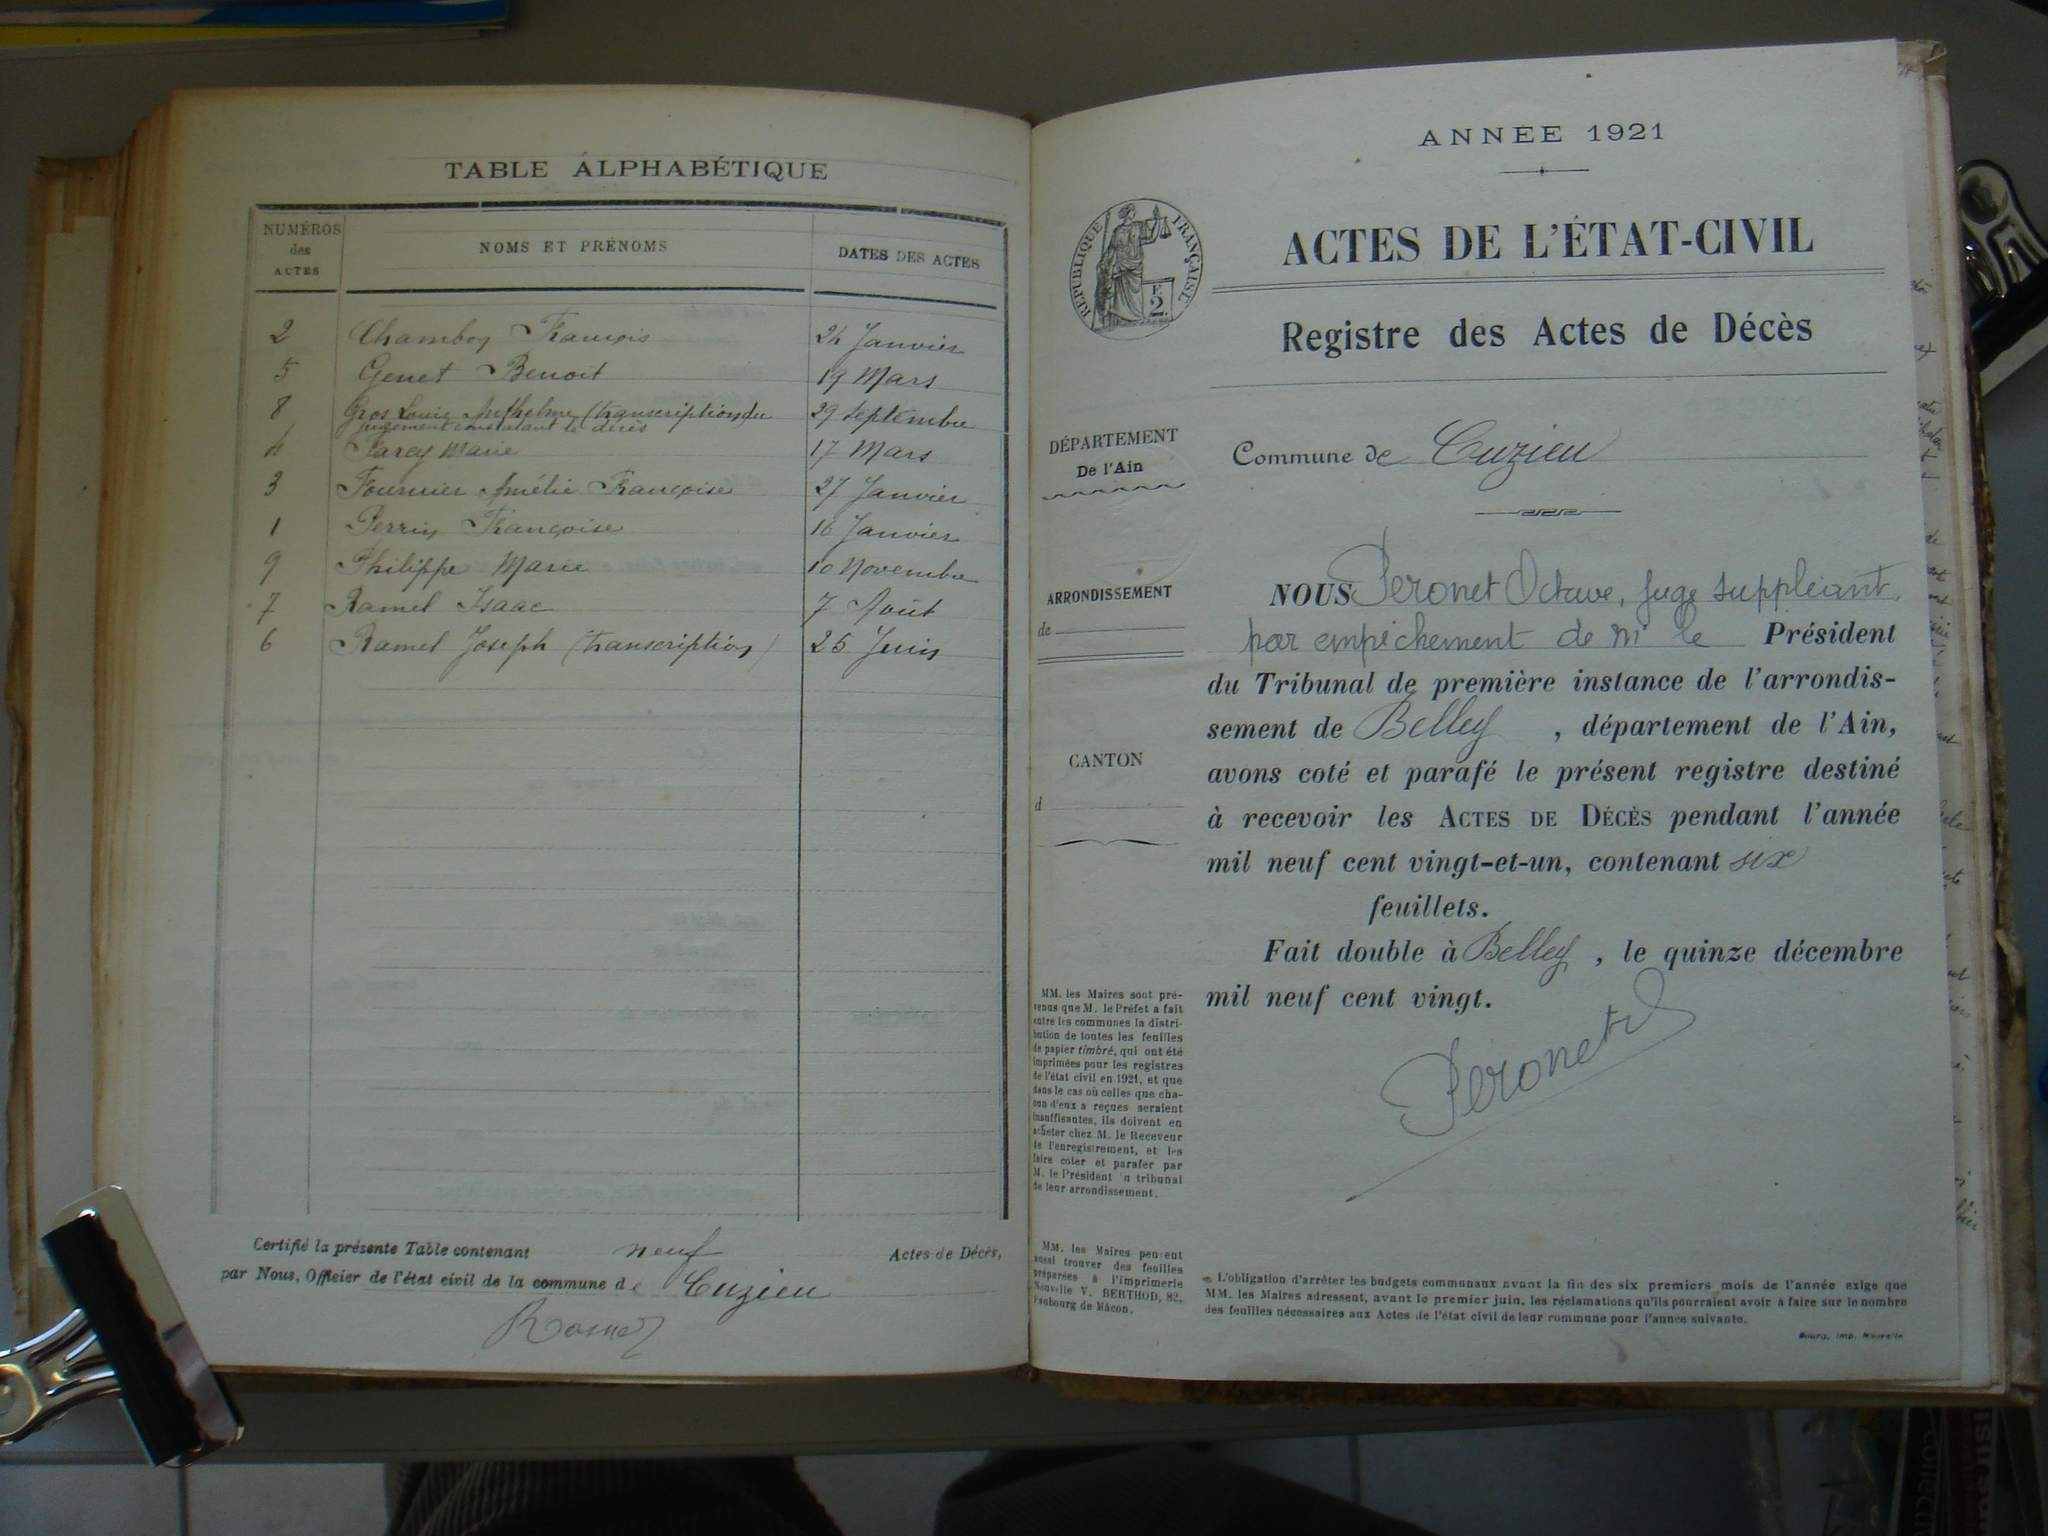 TABLE ALPHABÉTIQUE
NUMÉROS des ACTES
NOMS ET PRÉNOMS
DATES DES ACTES
2 Chamboy François 24 Janvier
5 Genet Benoit 19 Mars
8 Gros Louis Anthelme (transcription du 29 Septembre
jugement constatant le décès
4 Farcy Marie 17 Mars
3 Fournier Amélie Françoise 27 Janvier
1 Perrin Françoise 16 Janvier
9 Philippe Marie 10 Novembre
7 Ramel Isaac 7 Août
6 Ramel Joseph (transcription) 25 Juin
Certifié la présente Table contenant neuf Actes de Décès,
par Nous, Officier de l'état civil de la commune de Cuzieu
ANNÉE 1921
RÉPUBLIQUE FRANÇAISE
E
2.
ACTES DE L'ÉTAT-CIVIL
Registre des Actes de Décès
DÉPARTEMENT
De l'Ain
Commune de Cuzieu
ARRONDISSEMENT
de
CANTON
d
NOUS Peronet Octave, juge suppléant,
par empêchement de Mr le Président
du Tribunal de première instance de l'arrondis-
sement de Belley, département de l'Ain,
avons coté et parafé le présent registre destiné
à recevoir les ACTES DE DÉCÈS pendant l'année
mil neuf cent vingt-et-un, contenant six
feuillets.
Fait double à Belley, le quinze décembre
mil neuf cent vingt.
Peronet
MM. les Maires sont pré-
venus que M. le Préfet a fait
entre les communes la distri-
bution de toutes les feuilles
de papier timbré, qui ont été
imprimées pour les registres
de l'état civil en 1921, et que
dans le cas où celles que cha-
cun d'eux a reçues seraient
insuffisantes, ils doivent en
acheter chez M. le Receveur
de l'enregistrement, et les
faire coter et parafer par
M. le Président u tribunal
de leur arrondissement.
MM. les Maires peuvent
aussi trouver des feuilles
préparées à l'imprimerie
Nouvelle V. BERTHOD, 82,
Faubourg de Mâcon.
L'obligation d'arrêter les budgets communaux avant la fin des six premiers mois de l'année exige que
MM. les Maires adressent, avant le premier juin, les réclamations qu'ils pourraient avoir à faire sur le nombre
des feuilles nécessaires aux Actes de l'état civil de leur commune pour l'année suivante.
Bourg, Imp. Nouvelle